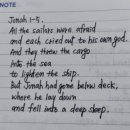 NOTE
Jonah 1-5.
All the sailors were afraid
and each cried out to his own god.
And they threw the cargo
into the sea
to lighten the ship.
But Jonah had gone below deck,
where he lay down
and fell into a deep sleep.